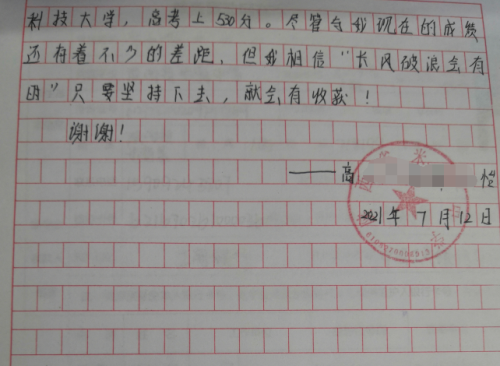 科技大学，高考上530分。尽管与我现在的成绩
还有着不少的差距，但我相信“长风破浪会有
时”只要坚持下去，就会有收获！
谢谢！
——高
2021年7月12日